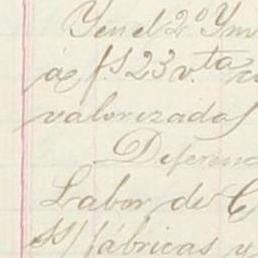 Y en el 2º Ym
á f. $23 v.ta
valorizadas
Diferenc
Labor de C
SS/ fábricas y